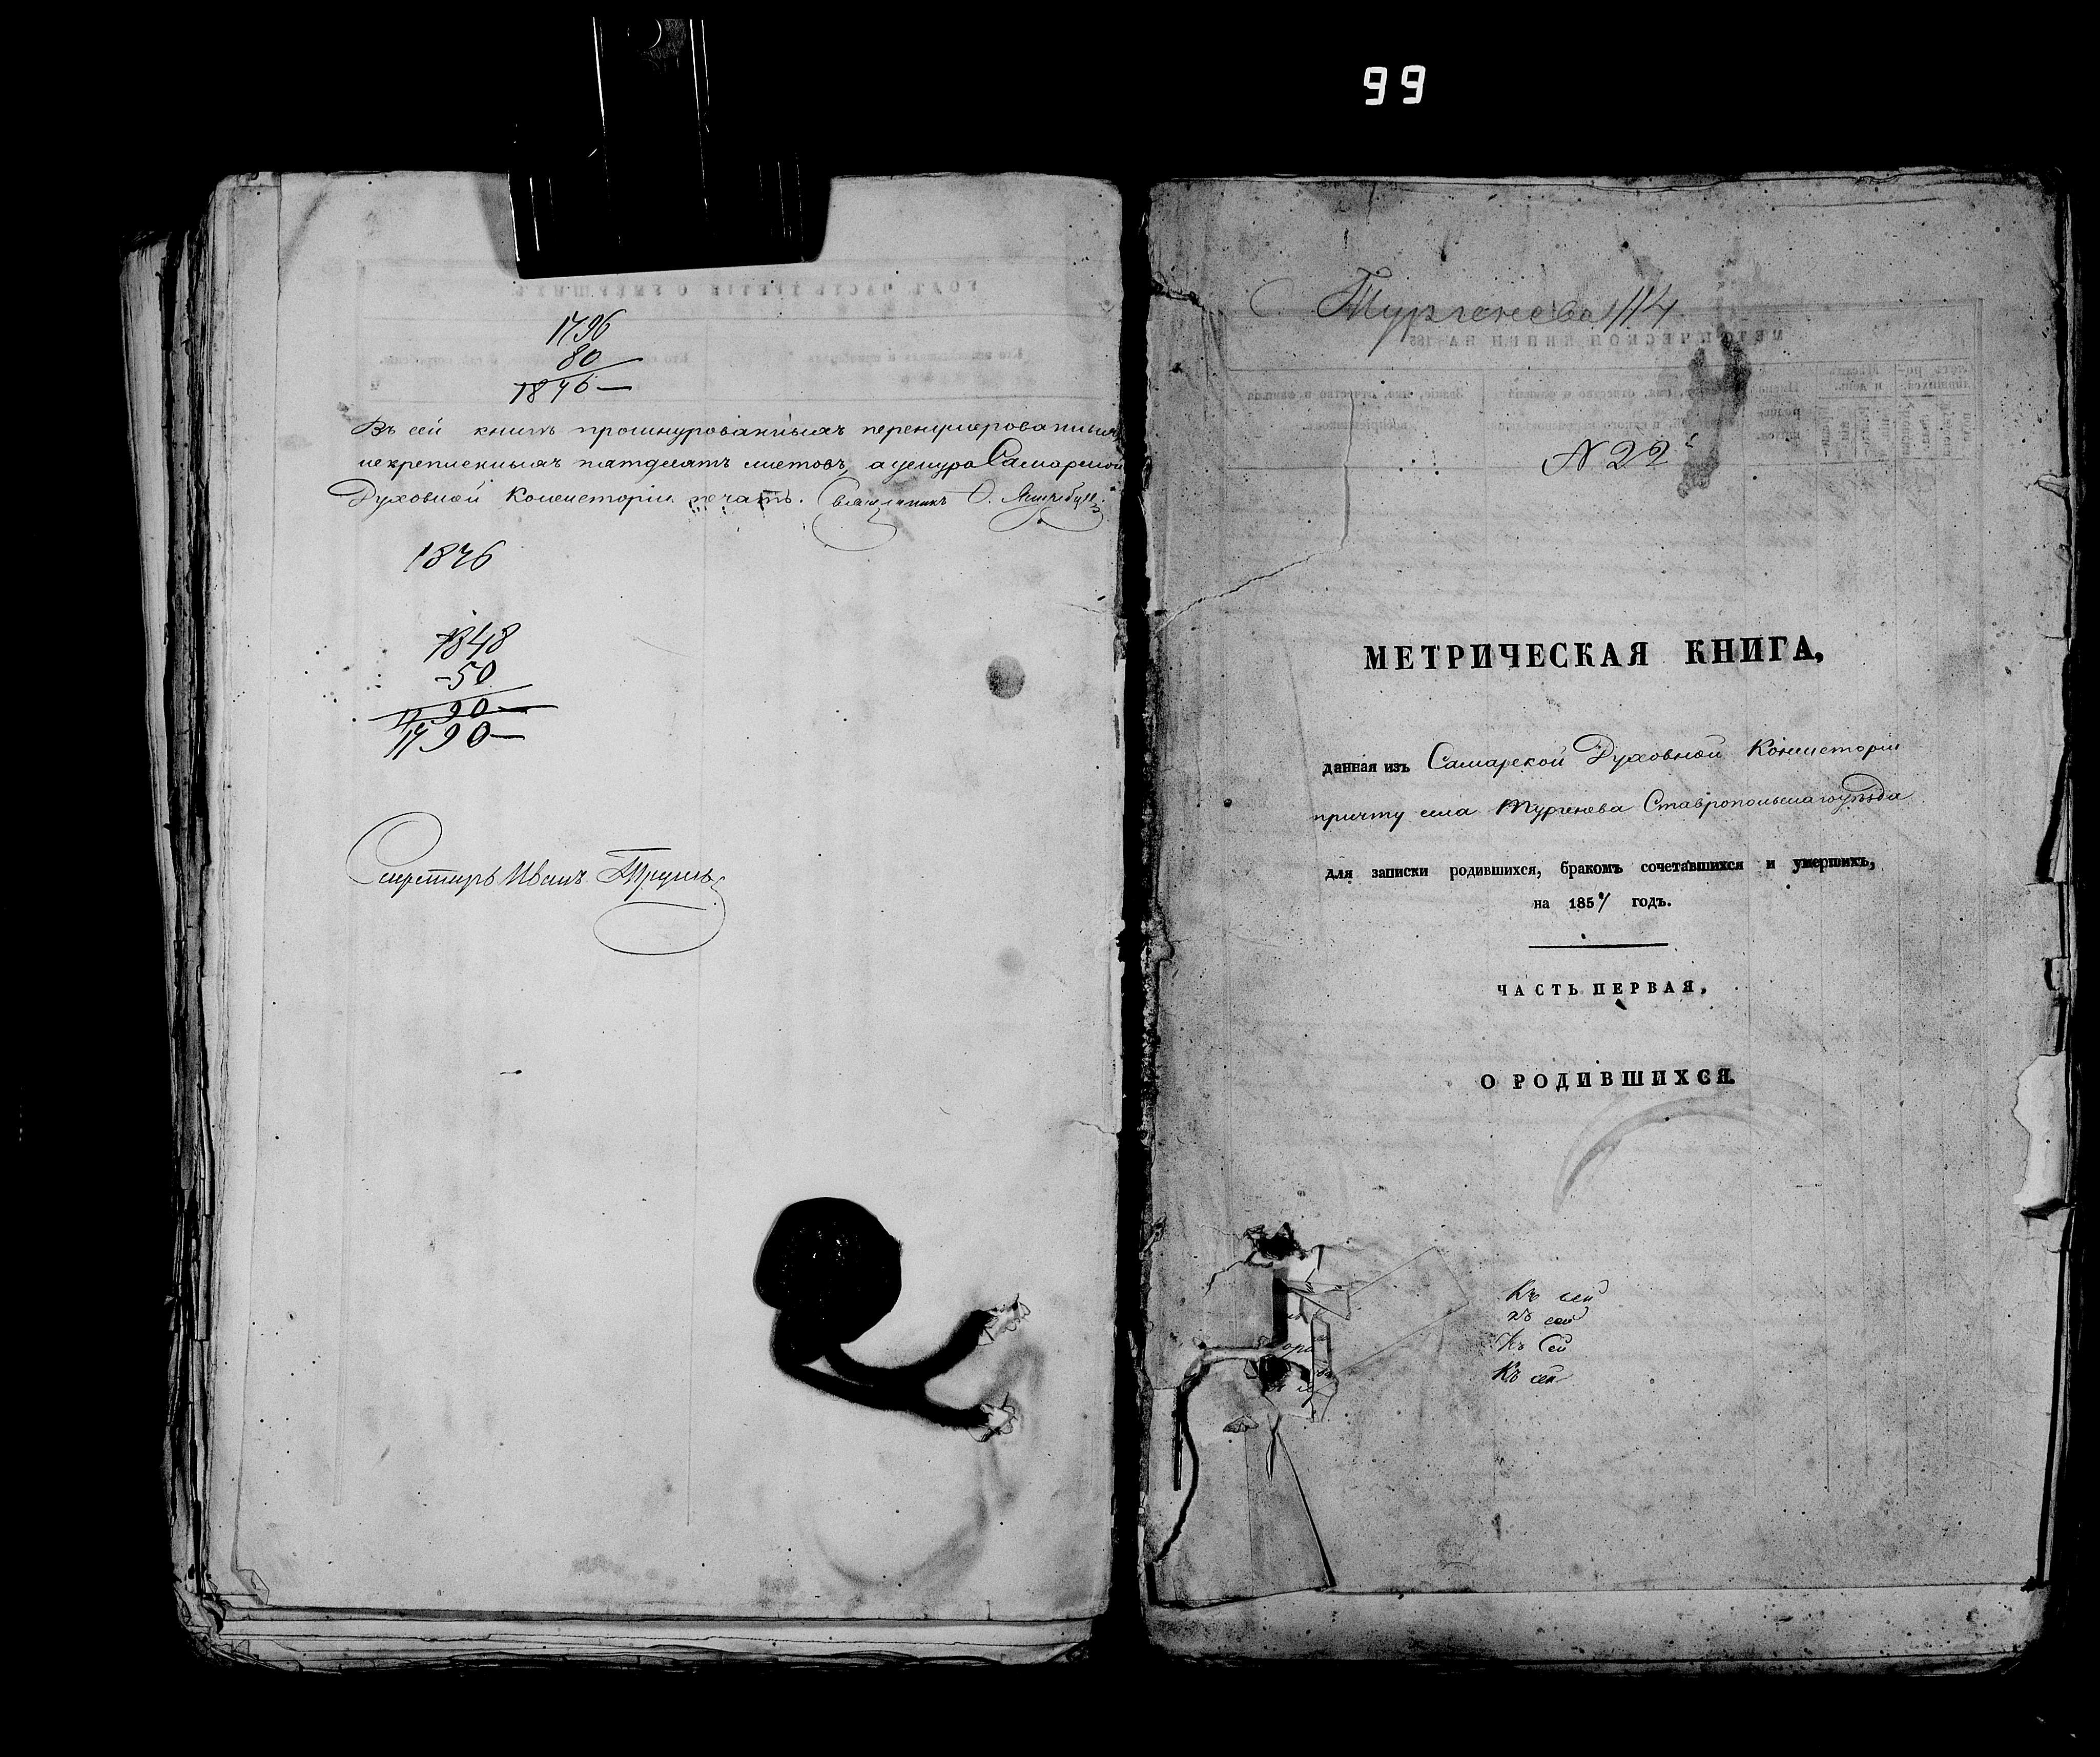 99
1796
80
1876—
Въ сей книгѣ прошнурованныхъ перенумерованныхъ
искрепленныхъ пятдесятъ листовъ, а у шнура Самарской
Духовной Консисторіи печать. Священникъ
1876
1848
50
90—
1790—
Секретарь Иванъ
С. Тургенева 114
N 22
МЕТРИЧЕСКАЯ КНИГА,
данная изъ Самарской Духовной Консисторіи
причту села Тургенева Ставропольскаго уѣзда
для записки родившихся, бракомъ сочетавшихся и умершихъ,
на 185 годъ.
ЧАСТЬ ПЕРВАЯ,
О РОДИВШИХСЯ.
Къ сей
Къ сей
Къ Сей
Къ сей